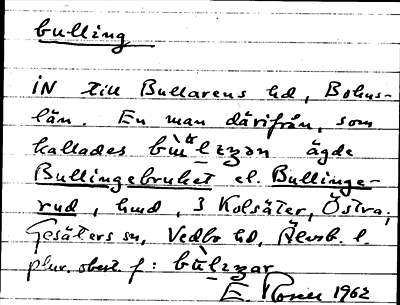 bulling
IN till Bullarens hd, Bohus-
län. En man därifrån, som
kallades ägde
Bullingebruket el. Bullinge-
rud, hmd, i Kolsäter, Östra;
Gesäters sn, Vedbo hd, Älvsb. l.
plur. obest. f:
E. Rosen 1962